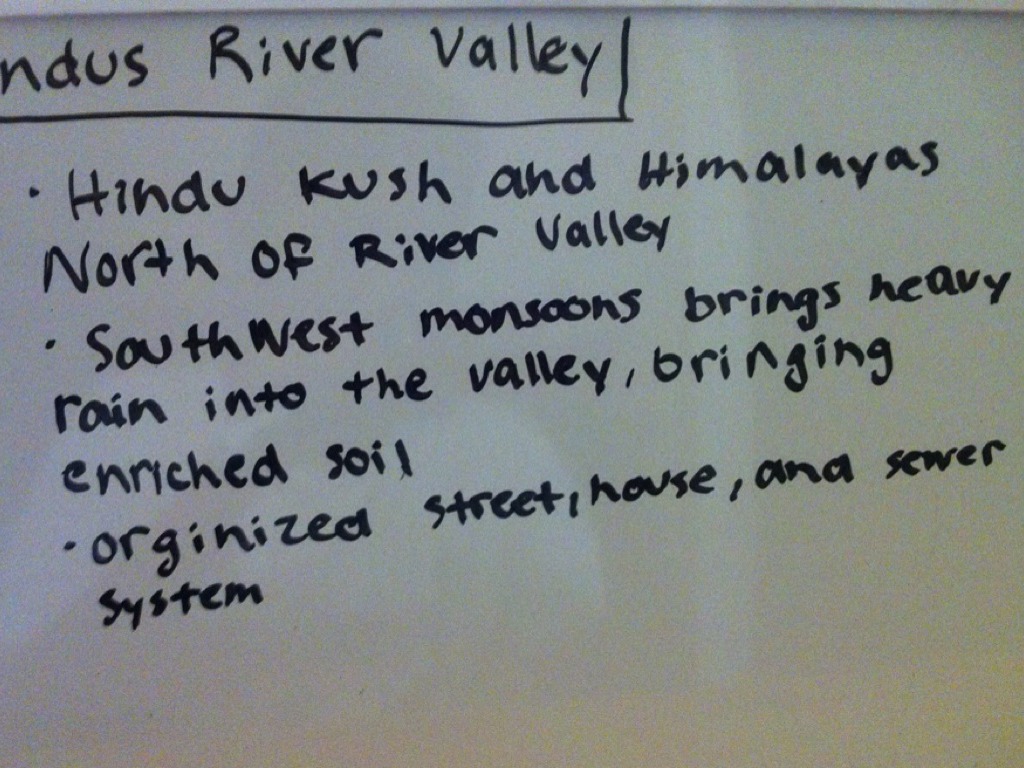 ndus River Valley
· Hindu Kush and Himalayas
North of River Valley
· SouthWest monsoons brings heavy
rain into the valley, bringing
enriched soil
· orginized street, house, and sewer
system